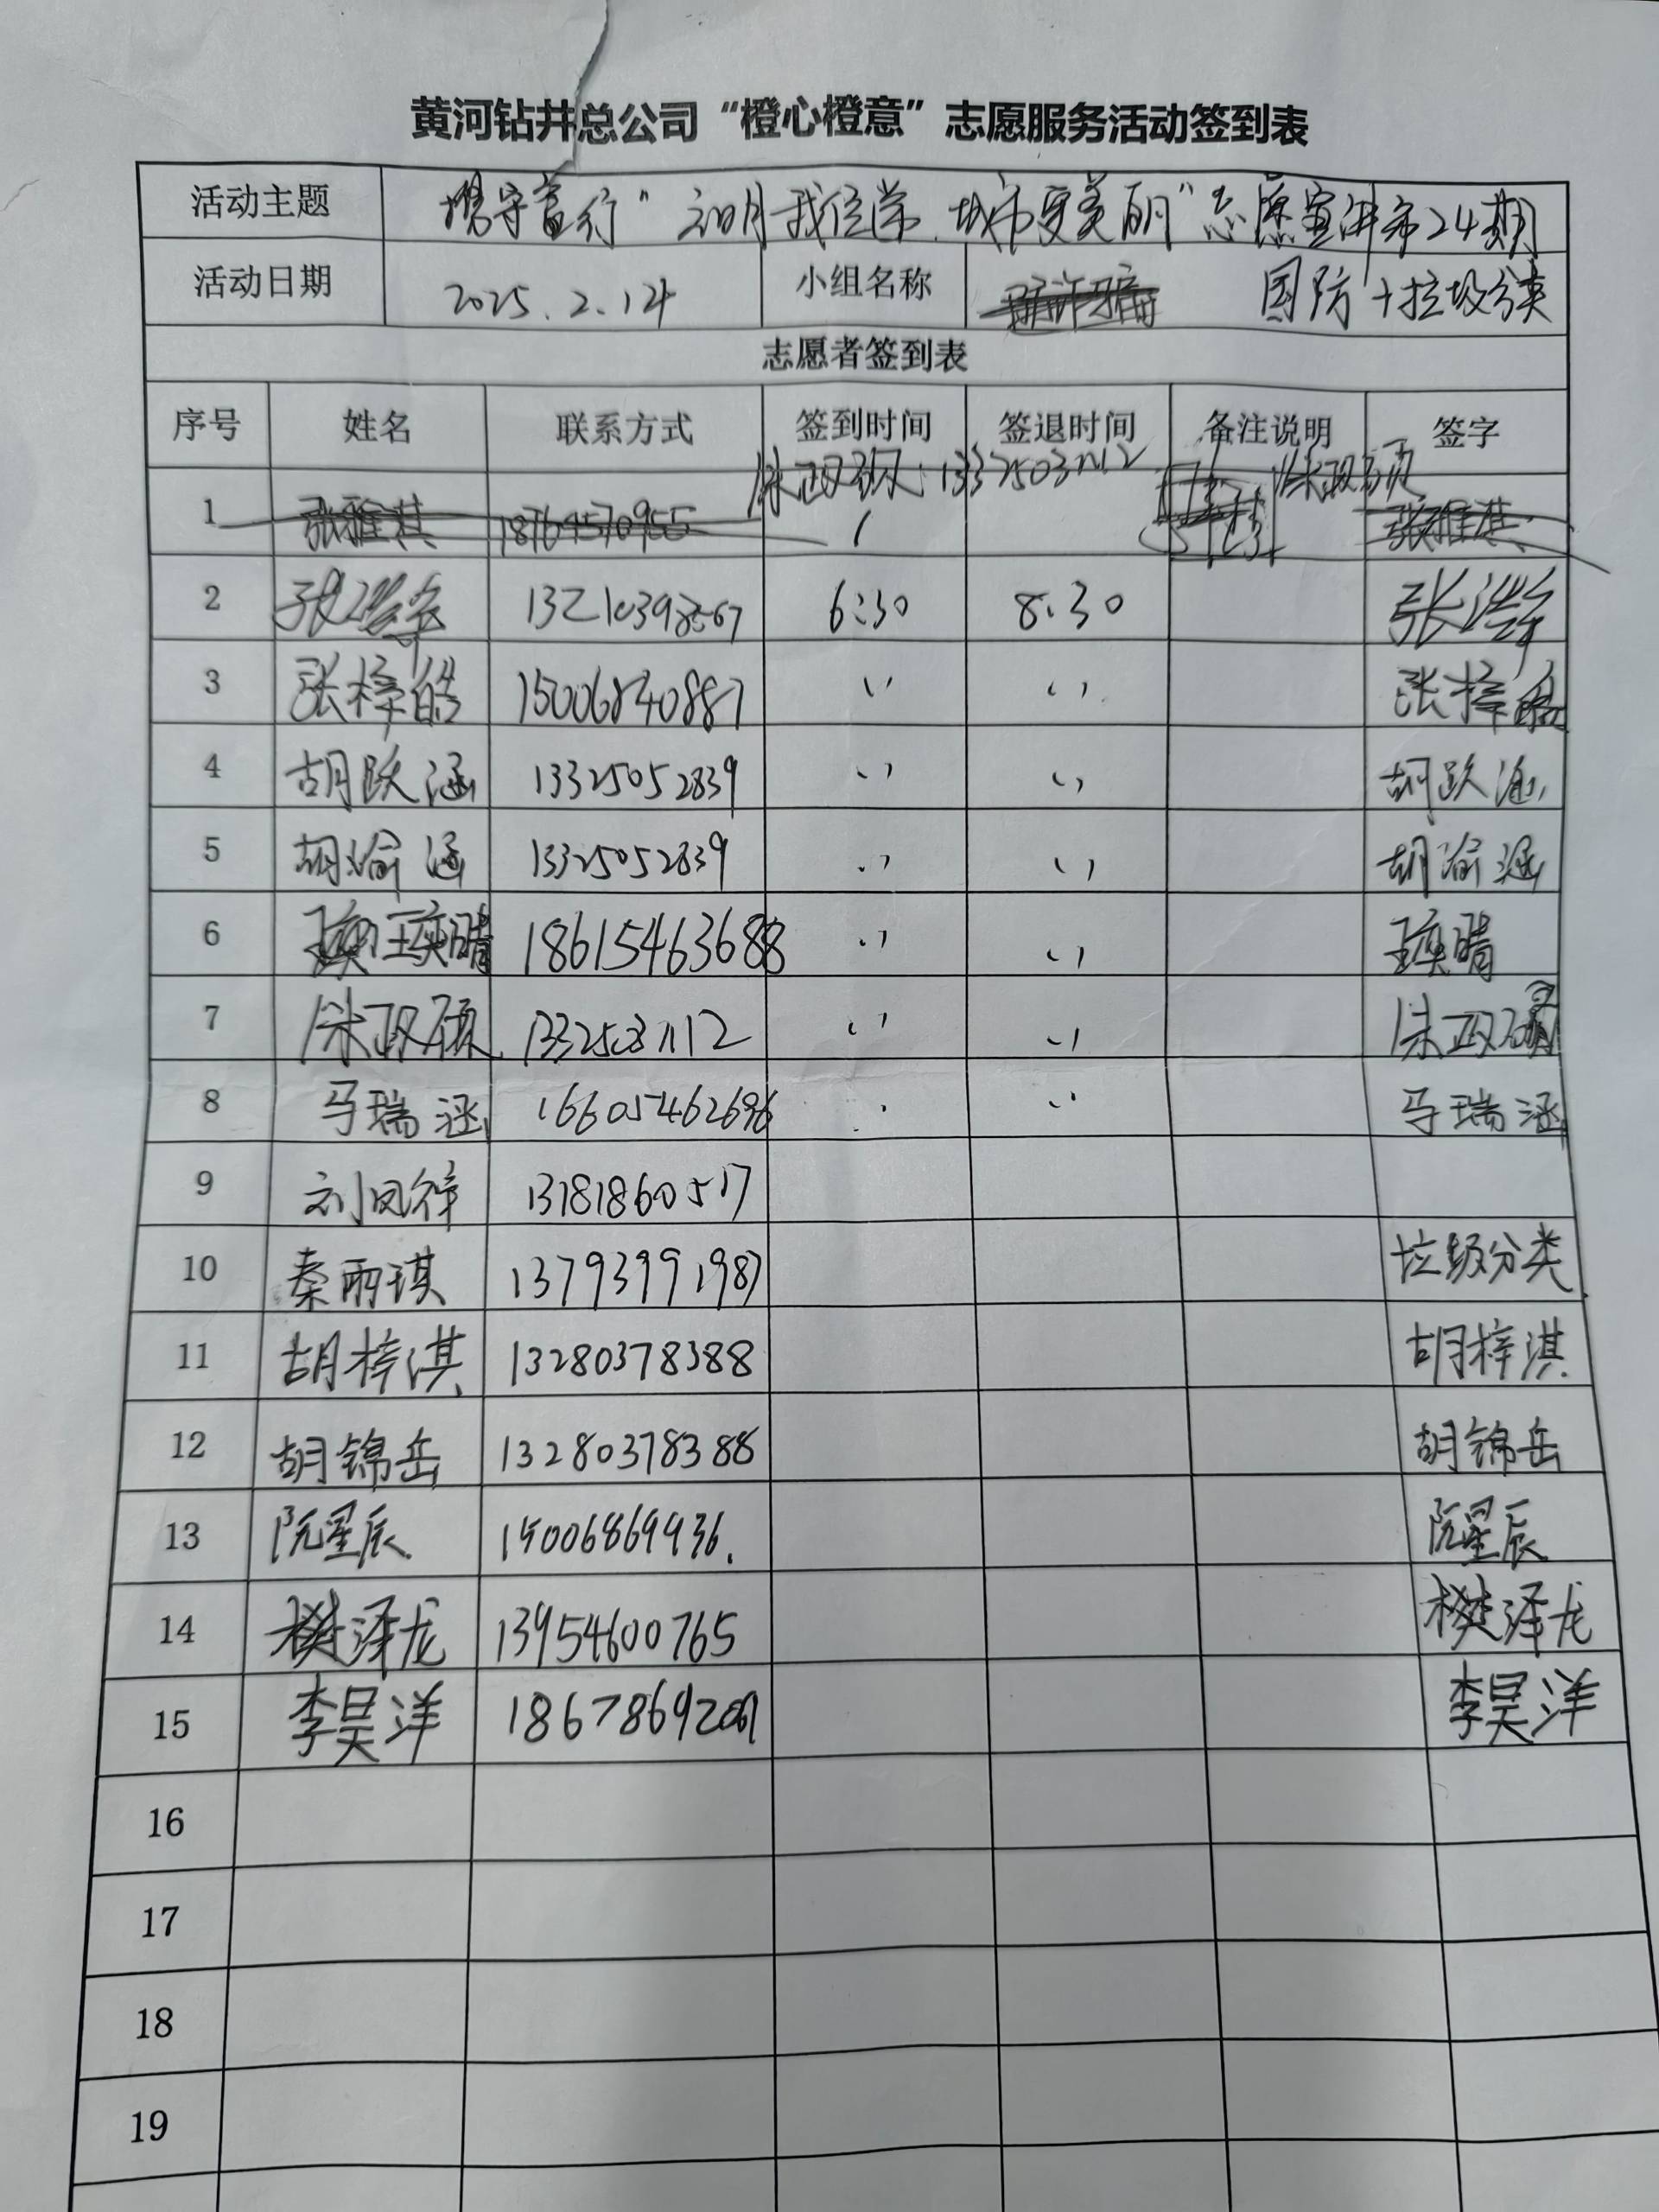 黄河钻井总公司“橙心橙意”志愿服务活动签到表
活动主题 携宇童行“文明我传学 城市更美丽”志愿宣讲第24期
活动日期 2025.2.14 小组名称 国防+垃圾分类
志愿者签到表
序号 姓名 联系方式 签到时间 签退时间 备注说明 签字
13325031112
1 张雅淇 18764570955 张雅淇
2 6:30 8:30
3 张梓皓 15006840887 〃 〃 张梓皓
4 胡跃涵 13325052839 〃 〃 胡跃涵
5 胡渝涵 13325052839 〃 〃 胡渝涵
6 王奕晴 18615463688 〃 〃 王奕晴
7 徐政硕 13325031112 〃 〃 徐政硕
8 马瑞涵 16605462696 〃 马瑞涵
9 刘凤祥 13181860517
10 秦雨琪 13793991987 垃圾分类
11 胡梓淇 13280378388 胡梓淇
12 胡锦岳 13280378388 胡锦岳
13 阮星辰 15006869936. 阮星辰
14 樊泽龙 13954600765 樊泽龙
15 李昊洋 李昊洋
16
17
18
19